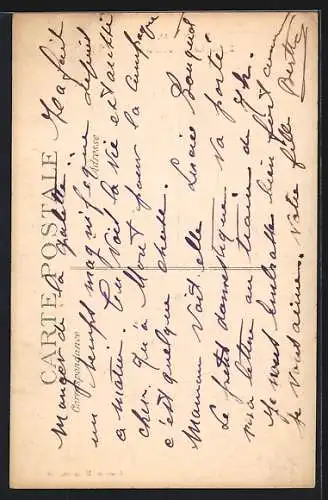 CARTE POSTALE
Correspondance
Adresse
manger de la galette. Il a fait
un temps magnifique depuis
ce matin. On voit la vie est aussi
cher qu'à Mont pour la campagne
c'est quelque chose.
Maman voit elle Lucie
Le petit domestique va porté
nos lettres au train de 7h.
Je vous embrasse bien fort comme
je vous aime. Votre fille Berthe